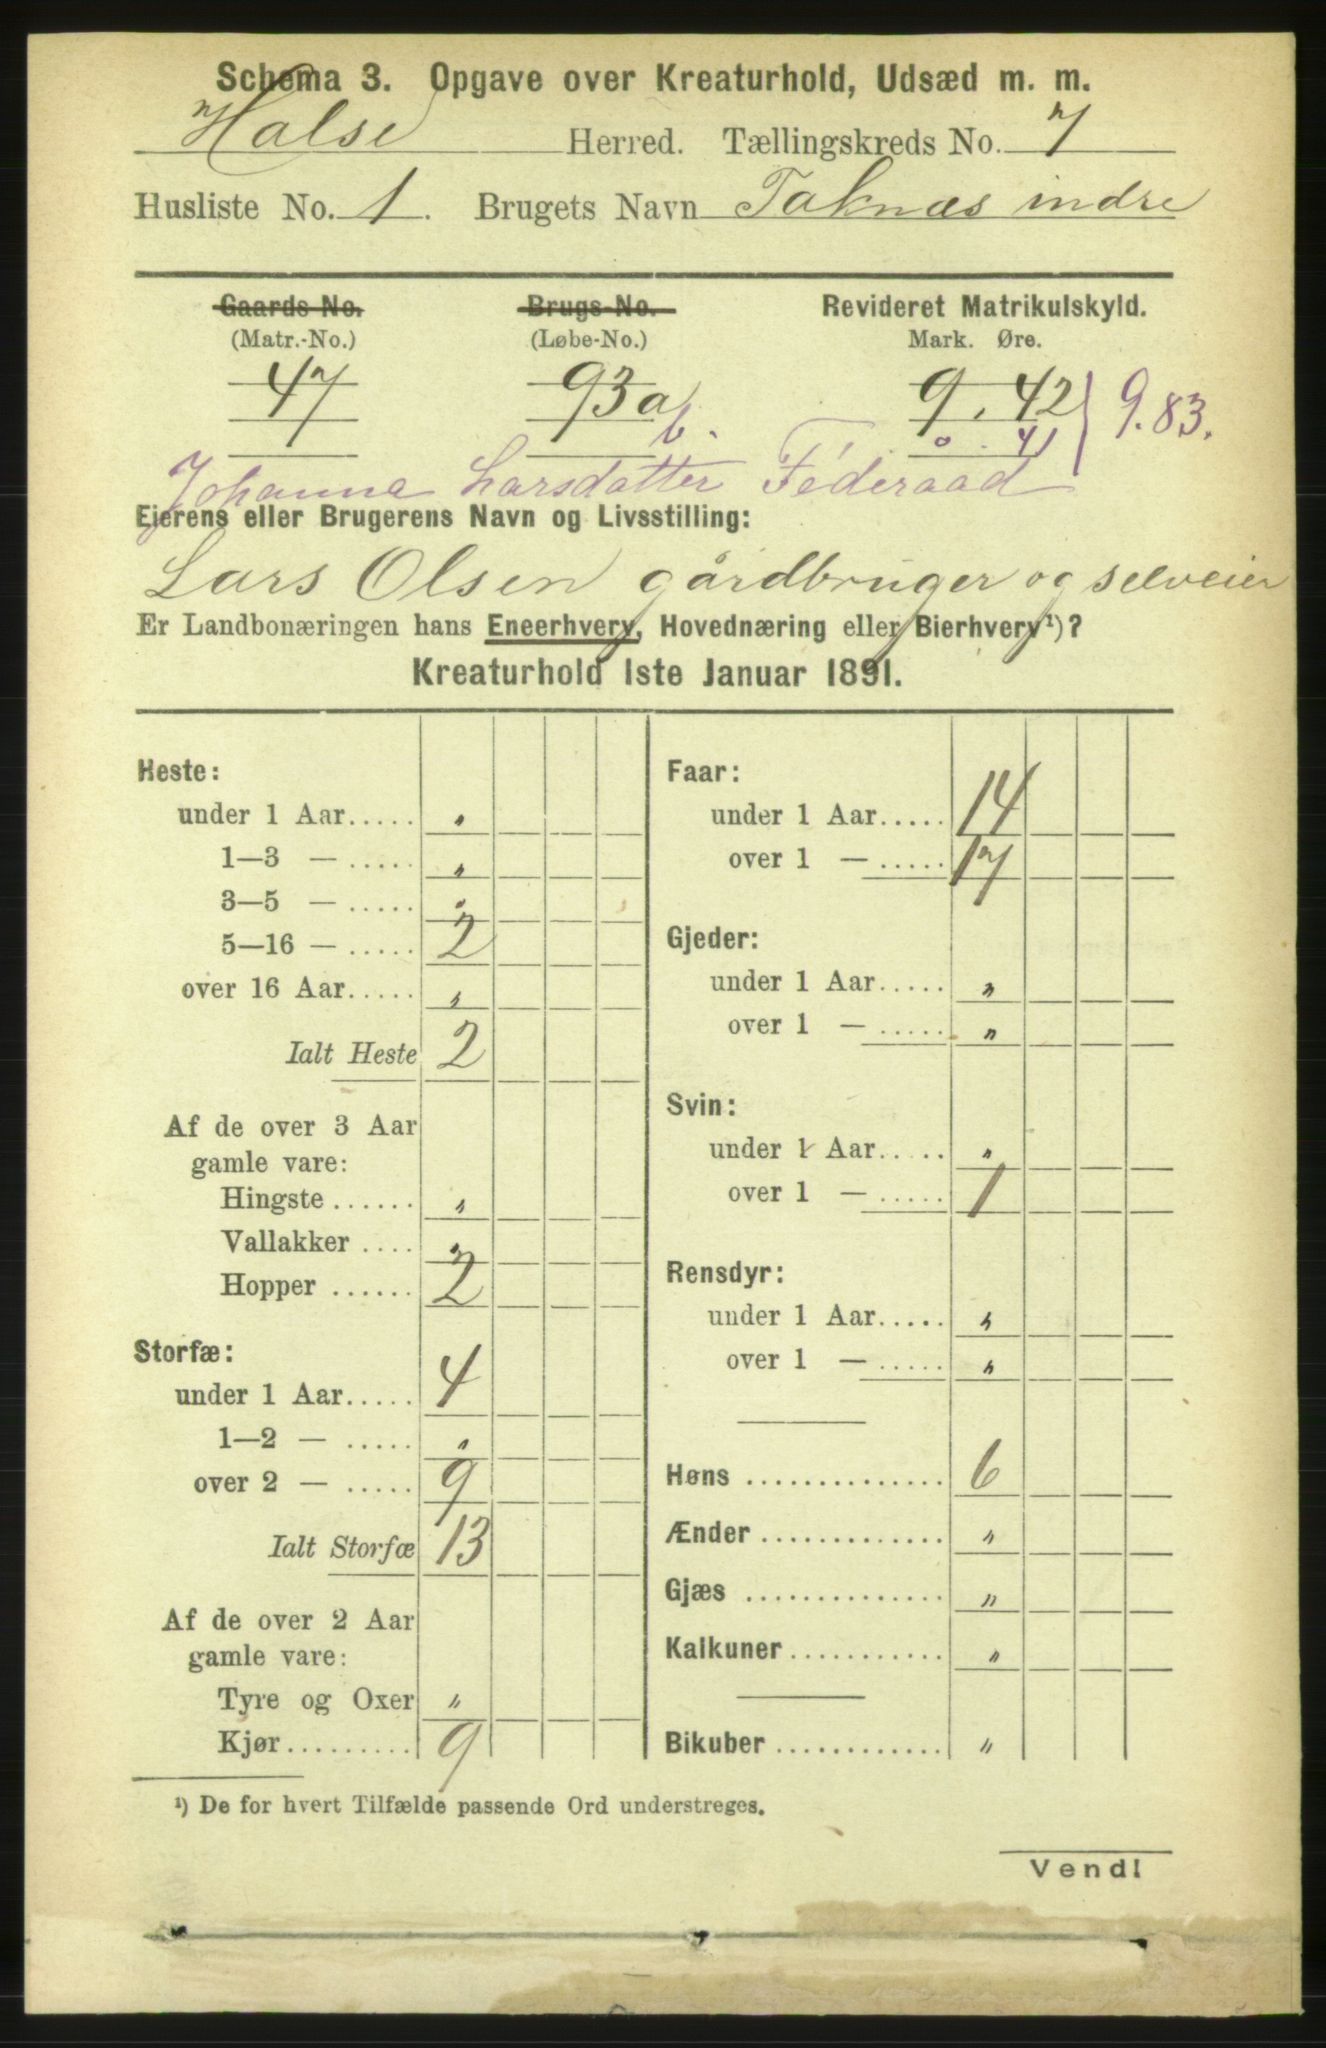 Schema 3. Opgave over Kreaturhold, Udsæd m. m.
Halse Herred. Tællingskreds No. 7
Husliste No. 1. Brugets Navn Taknæs indre
Gaards-No. Brugs-No. Revideret Matrikulskyld.
(Matr.-No.) (Løbe-No.) Mark. Øre.
47 93a 9.42 9.83.
b. 0.41
Johanna Larsdatter Föderaad
Eierens eller Brugerens Navn og Livsstilling:
Lars Olsen gårdbruger og selveier
Er Landbonæringen hans Eneerhverv, Hovednæring eller Bierhverv¹)?
Kreaturhold 1ste Januar 1891.
Heste:
under 1 Aar..... "
1—3 — ..... "
3—5 — ..... "
5—16 — ..... 2
over 16 Aar..... "
Ialt Heste 2
Af de over 3 Aar
gamle vare:
Hingste ...... "
Vallakker .... "
Hopper ...... 2
Storfæ:
under 1 Aar..... 4
1—2 — ..... "
over 2 — ..... 9
Ialt Storfæ 13
Af de over 2 Aar
gamle vare:
Tyre og Oxer "
Kjør......... 9
Faar:
under 1 Aar..... 14
over 1 — ..... 17
Gjeder:
under 1 Aar..... "
over 1 — ..... "
Svin:
under 1 Aar..... "
over 1 — ..... 1
Rensdyr:
under 1 Aar..... "
over 1 — ..... "
Høns .............. 6
Ænder ............. "
Gjæs .............. "
Kalkuner ........... "
Bikuber ............ "
¹) De for hvert Tilfælde passende Ord understreges.
Vend!